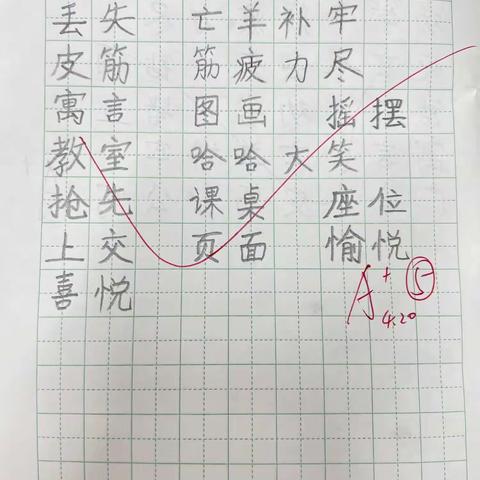 丢失 亡羊补牢
皮筋 筋疲力尽
寓言 图画 摇摆
教室 哈哈大笑
抢先 课桌 座位
上交 页面 愉悦
喜悦
A+ 5
4.20